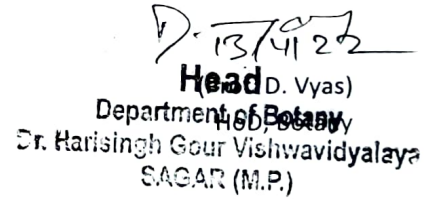 D. 13/4/22
Head
D. Vyas)
Department of Botany
HoD, Botany
Dr. Harisingh Gour Vishwavidyalaya
SAGAR (M.P.)